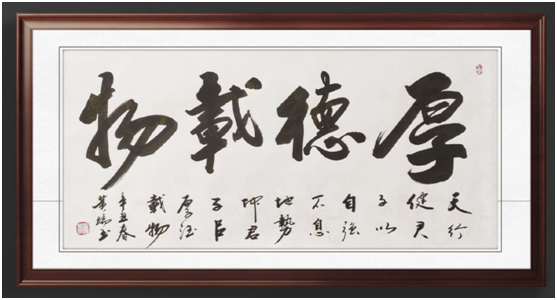 厚德載物
天行
健君
子以
自強
不息
地勢
坤君
子以
厚德
載物
辛丑春
书